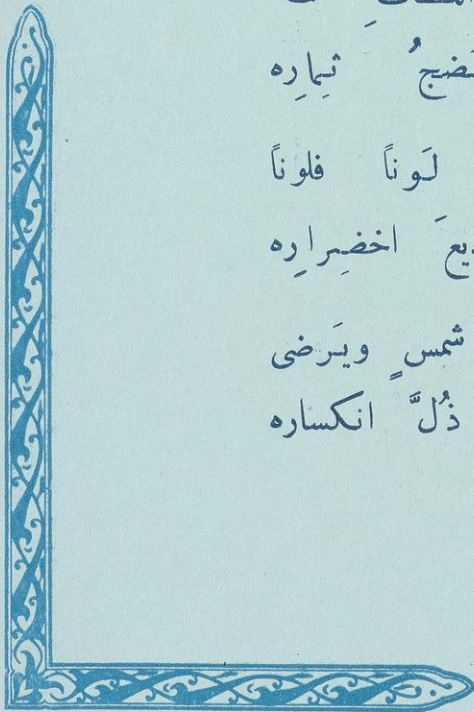 ثِمارِه
لَوناً فلوناً
اخضِرارِه
شمسٍ ويَرضى
ذُلَّ انكساره